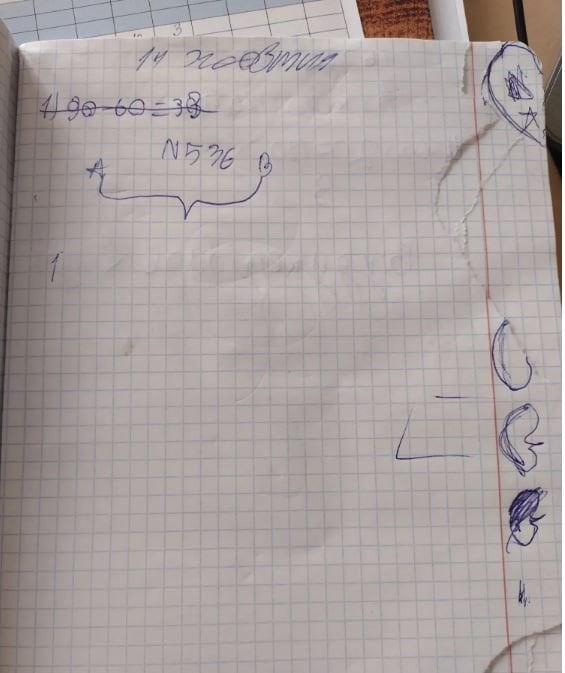 14 жовтня
1) 90-60=38
N536
A B
1